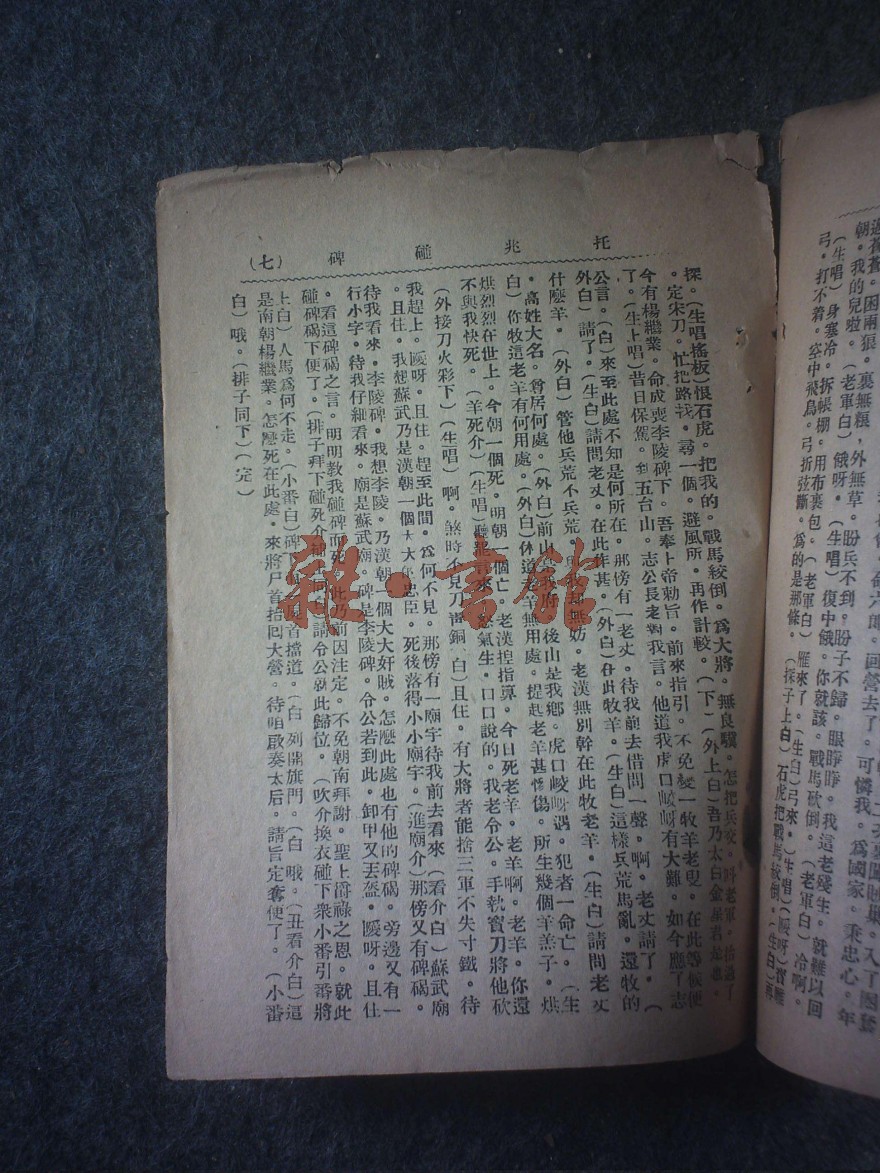 托兆碰碑 (七)
探。(生唱搖板)恨石虎。把我的。戰馬絞倒。爲大將。無良驥。怎把兵交。
。定宋刀。忙把路找。尋一個。避風所。再作計較。(下)(外上白)吾乃太白金星君是也。
今有楊繼業。命成喪李陵碑下。吾奉上帝勅旨。前來指引。不免變一牧羊老叟。在此等候便
了。(生上唱)昔日保駕。到五台山。志公長老對我言。他道我虎口峧峅有大難。如今應了志
公言。(白)來至此處不知是何所在。那傍有一老丈。待我前去借問一聲。啊。老丈請了。(
外白)請了。(生白)請問老丈。在此作甚。(外白)在此牧羊。(生白)這樣兵荒馬亂。還牧的
什麽羊。(外白)管他兵荒不兵荒。與我都無妨。老漢無別幹在此牧老羊。(生白)請問老丈
。高姓大名。尊居何處。(外白)前山是我 後山是我鄉。虎口峧峅遇。犯者一命亡。(生
白)你牧這老羊有何用處。(外白)休道老羊無用處。提起老羊甚慘傷。所生幾個羊羔子。烘
烘烈烈在世上。今朝一個死。明朝一個亡。老漢揑指算。今日死老羊。老羊啊。老羊。你還
不與我快死。(羊死介)(生唱)聽 言來。怒氣生。口口說的。我老令公。手執寳刀將他砍
(外接刀火彩下)(生唱)啊。煞時不見刀 銅 白)且住。有大將者能捨三軍不失寸鐵。待
我趕上。噯呀。且住。趕至此間。爲何不見。那傍有一廟宇待我前去看來。(看介白)蘇武廟
。且住。我想蘇武乃是漢朝一個大大 忠臣。死後落得小小廟宇。(進廟介)那傍又有碑碣。
待我看來。李陵碑。我想李陵。乃漢朝一個大大奸賊。怎麽此處也有他的碑碣。旁邊又有一
行小字。待我仔細看來。廟是蘇武廟。碑是李陵碑。令公若到此。卸甲又丟盔。噯呀。且住
。看這碑碣之言。明明教我碰碑而死。此乃前因注定。不免朝南拜謝。聖上爵祿之恩。就此
碰碑碣下便了。(排子拜下碰死介 請令公就此歸位。(吹介換衣碰下衆小番引番將
上白)人馬爲何不走。(小番白)碑 首擋道。(白)列開旗門。(白 哦。(丑看介白)這
是南朝楊繼業。怎麽死在此處。來將尸首抬囘大營。待咱啟奏太后。請旨定奪便了。(小番
白)哦。(排子同下)(完)
雜·書館
回營去了。可憐我。爲國家。秉忠心。年
朝。我的兒啦。困兩狼。裏無糧。外無草。盼兵不到。盼子不歸。眼睜睜。我這老殘生。就難以回
(生唱)身寒冷。拆帳棚。用布裹包。(老軍白)餓呀。(生唱)復中餓。你就該。戰馬砍倒。(老軍白)冷啊。
弓。打不着。空中飛鳥。弓折弦斷。爲的是那條。(探子上白)石虎把戰馬絞倒。(生白)再